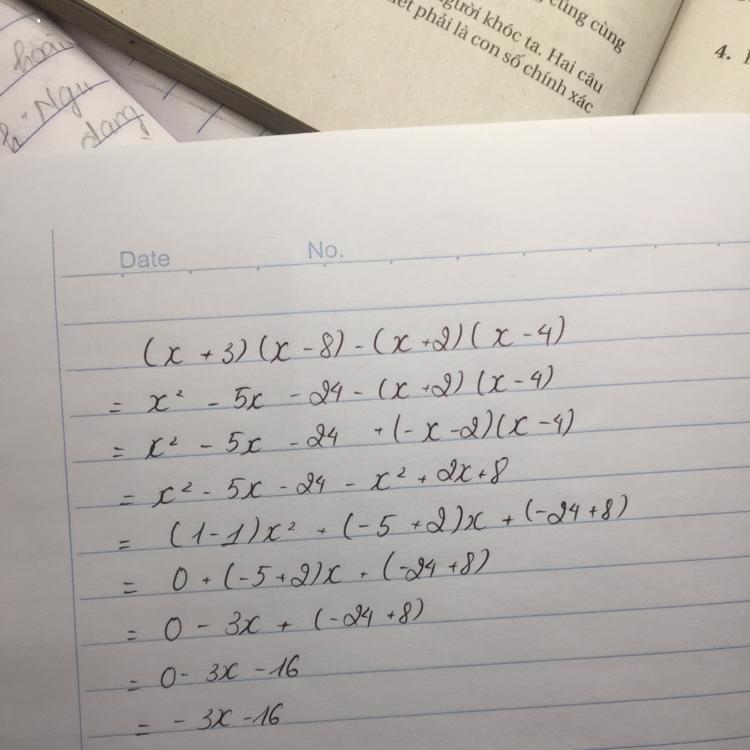 cũng cùng
người khóc ta. Hai câu
phải là con số chính xác
4.
hoài
Ngu
dang
Date No.
(x + 3)(x - 8) - (x + 2)(x - 4)
= x² - 5x - 24 - (x + 2)(x - 4)
= x² - 5x - 24 + (- x - 2)(x - 4)
= x² - 5x - 24 - x² + 2x + 8
= (1 - 1)x² + (-5 + 2)x + (-24 + 8)
= 0 + (-5 + 2)x + (-24 + 8)
= 0 - 3x + (-24 + 8)
= 0 - 3x - 16
= - 3x - 16